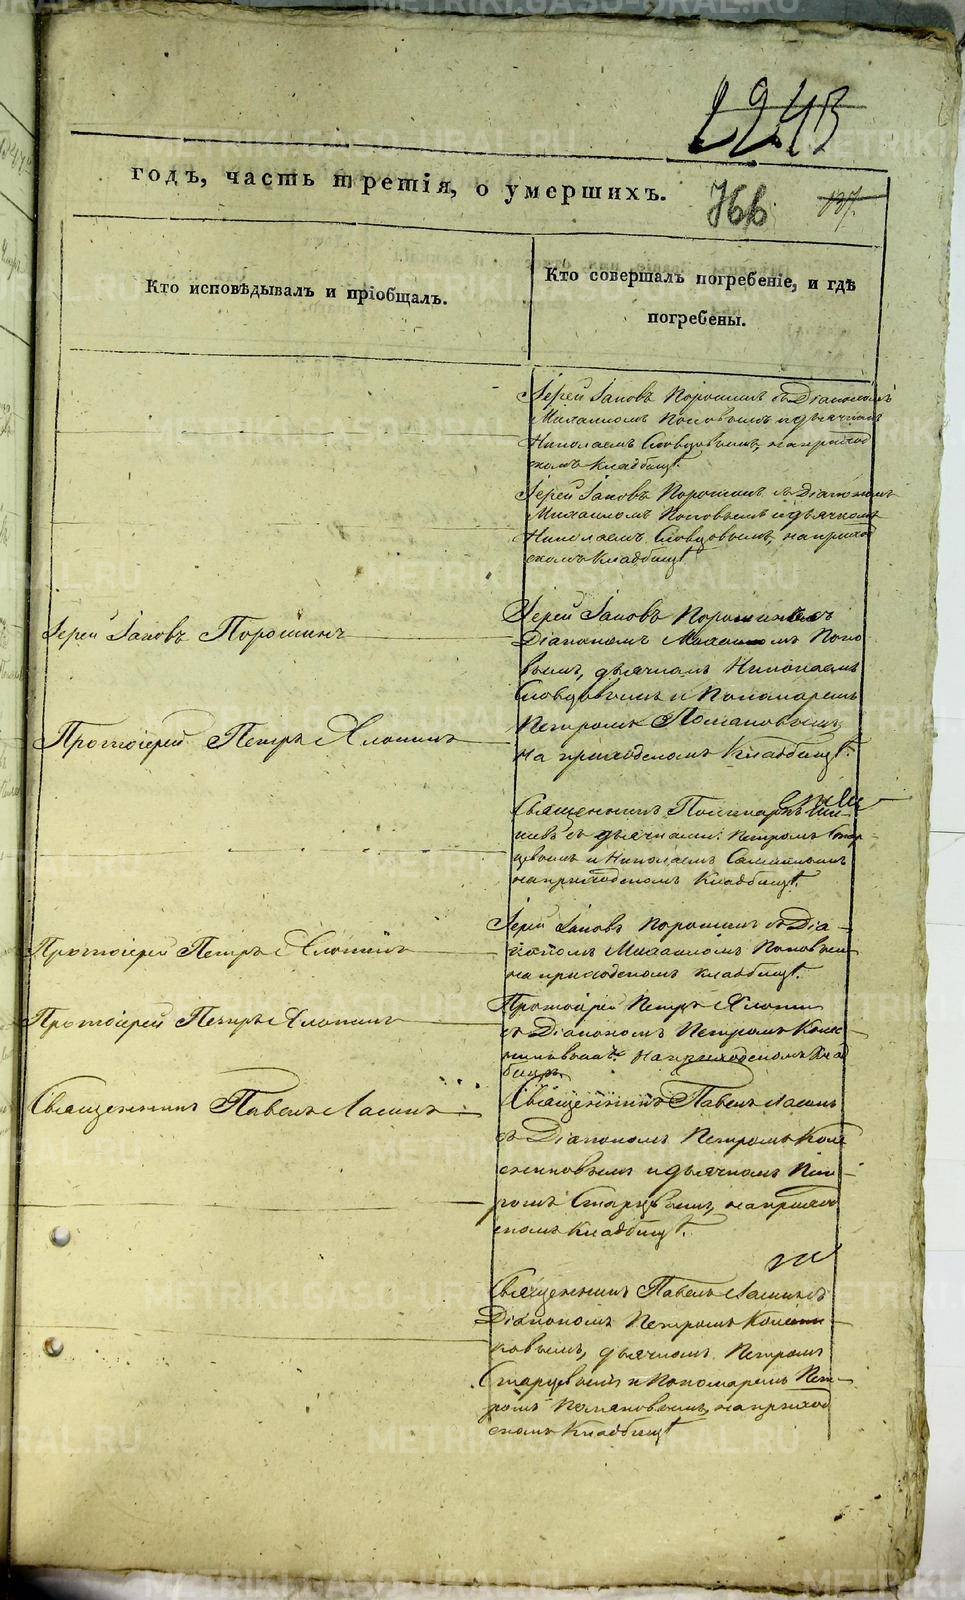 2243
годъ, часть третія, о умершихъ.
766
137.
Кто исповѣдывалъ и пріобщалъ.
Кто совершалъ погребеніе, и гдѣ
погребены.
Іерей Іаковъ Порошинъ съ Діакономъ
Михаиломъ Поповымъ и дьячкомъ
Николаемъ Словцовымъ, на приход
скомъ Кладбищѣ.
Іерей Іаковъ Порошинъ съ Діакономъ
Михаиломъ Поповымъ и дьячкомъ
Николаемъ Словцовымъ, на приход
скомъ Кладбищѣ
Іерей Іаковъ Порошинъ
Іерей Іаковъ Порошинъ съ
Діакономъ Михаиломъ Попо
вымъ, дьячкомъ Николаемъ
Словцовымъ и Пономаремъ
Петромъ
Протоіерей Петръ Хлопинъ
на приходскомъ Кладбищѣ.
Священникъ
съ дьячками: Петромъ Стар-
цевымъ и Николаемъ
на приходскомъ Кладбищѣ.
Протоіерей Петръ Хлопинъ
Іерей Іаковъ Порошинъ съ Діа-
кономъ Михаиломъ Поповымъ
на приходскомъ кладбищѣ.
Протоіерей Петръ Хлопинъ
Протоіерей Петръ Хлопинъ
съ Діакономъ Петромъ Колес
никовымъ на приходскомъ Клад
бищѣ
Священникъ Павелъ
Священникъ Павелъ
съ Діакономъ Петромъ Коле
сниковымъ и дьячкомъ Пет-
ромъ Старцевымъ, на приход
скомъ Кладбищѣ.
Священникъ Павелъ
Діакономъ Петромъ Колесни-
ковымъ, дьячкомъ Петромъ
Старцевымъ и Пономаремъ Пет-
ромъ на приход
скомъ Кладбищѣ